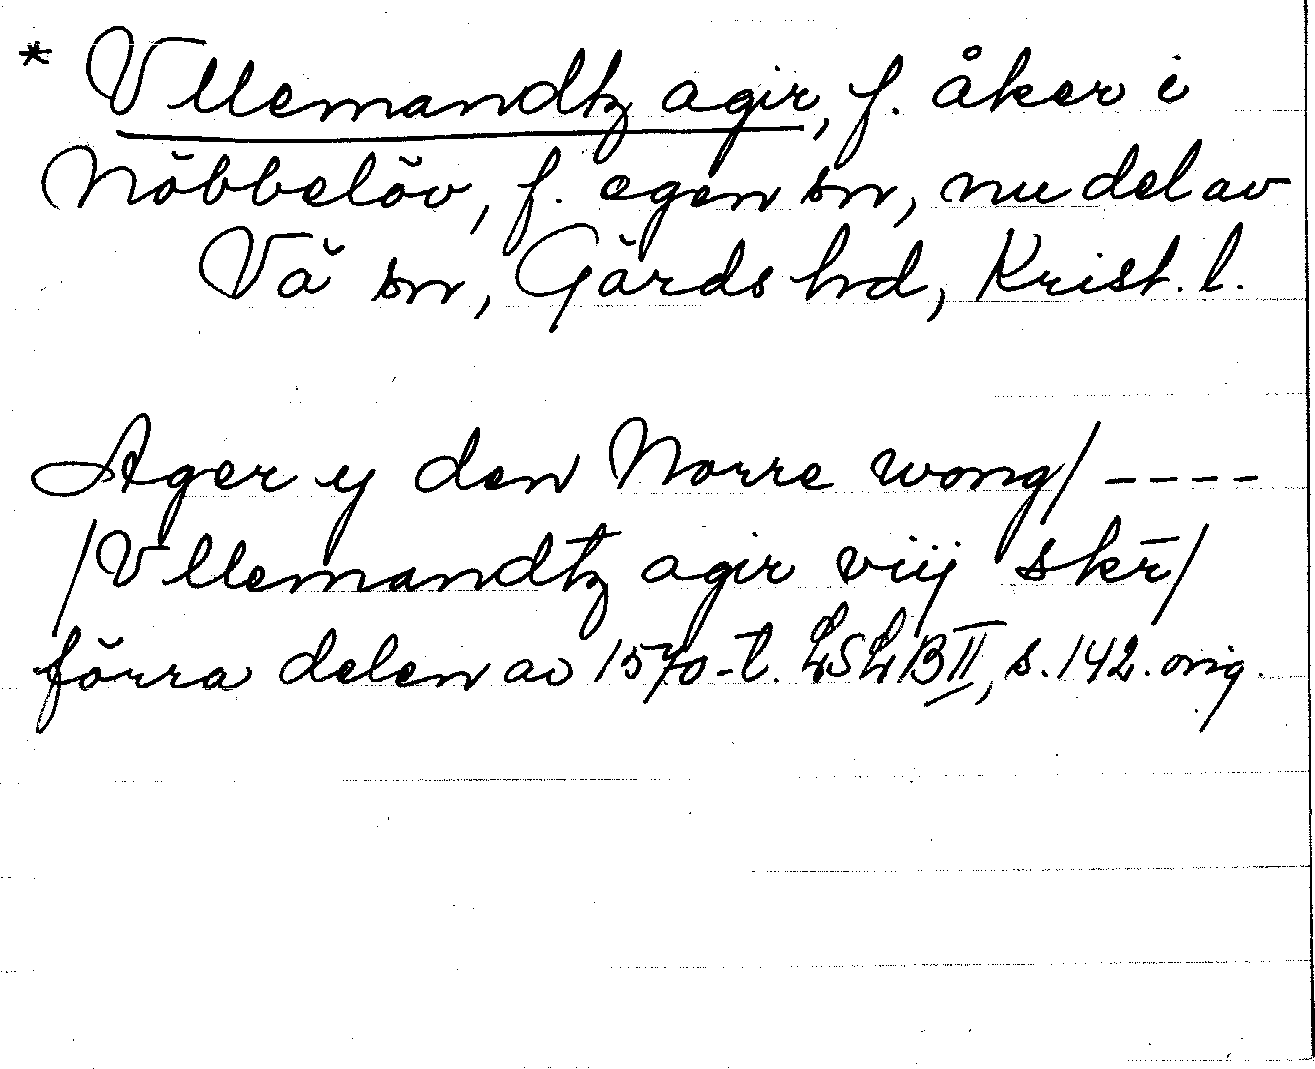 * Vllemandtz agir, f. åker i
Nöbbelöv, f. egen sn, nu del av
Vä sn, Gärds hd, Krist. l.
Ager y den Norre wong/ ----
/Vllemandtz agir viij skr̄/
förra delen av 1570-t. LSLB II, s. 142. orig.